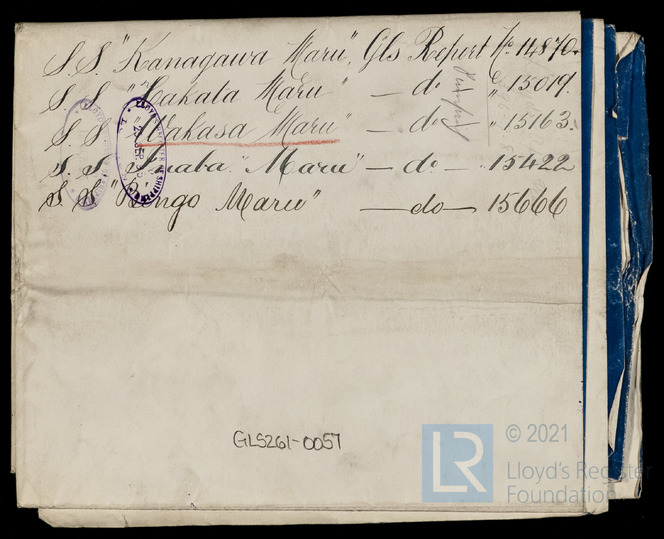 S.S. "Kanagawa Maru", Gls Report No. 14870.
S. S. "Hakata Maru" — do „ 15019.
S. S. "Wakasa Maru" — do „ 15163.
S. S. "Inaba Maru" — do — 15422
S. S. "Bingo Maru" — do — 15666
GLS261-0057
LR
© 2021
Lloyd's Register
Foundation